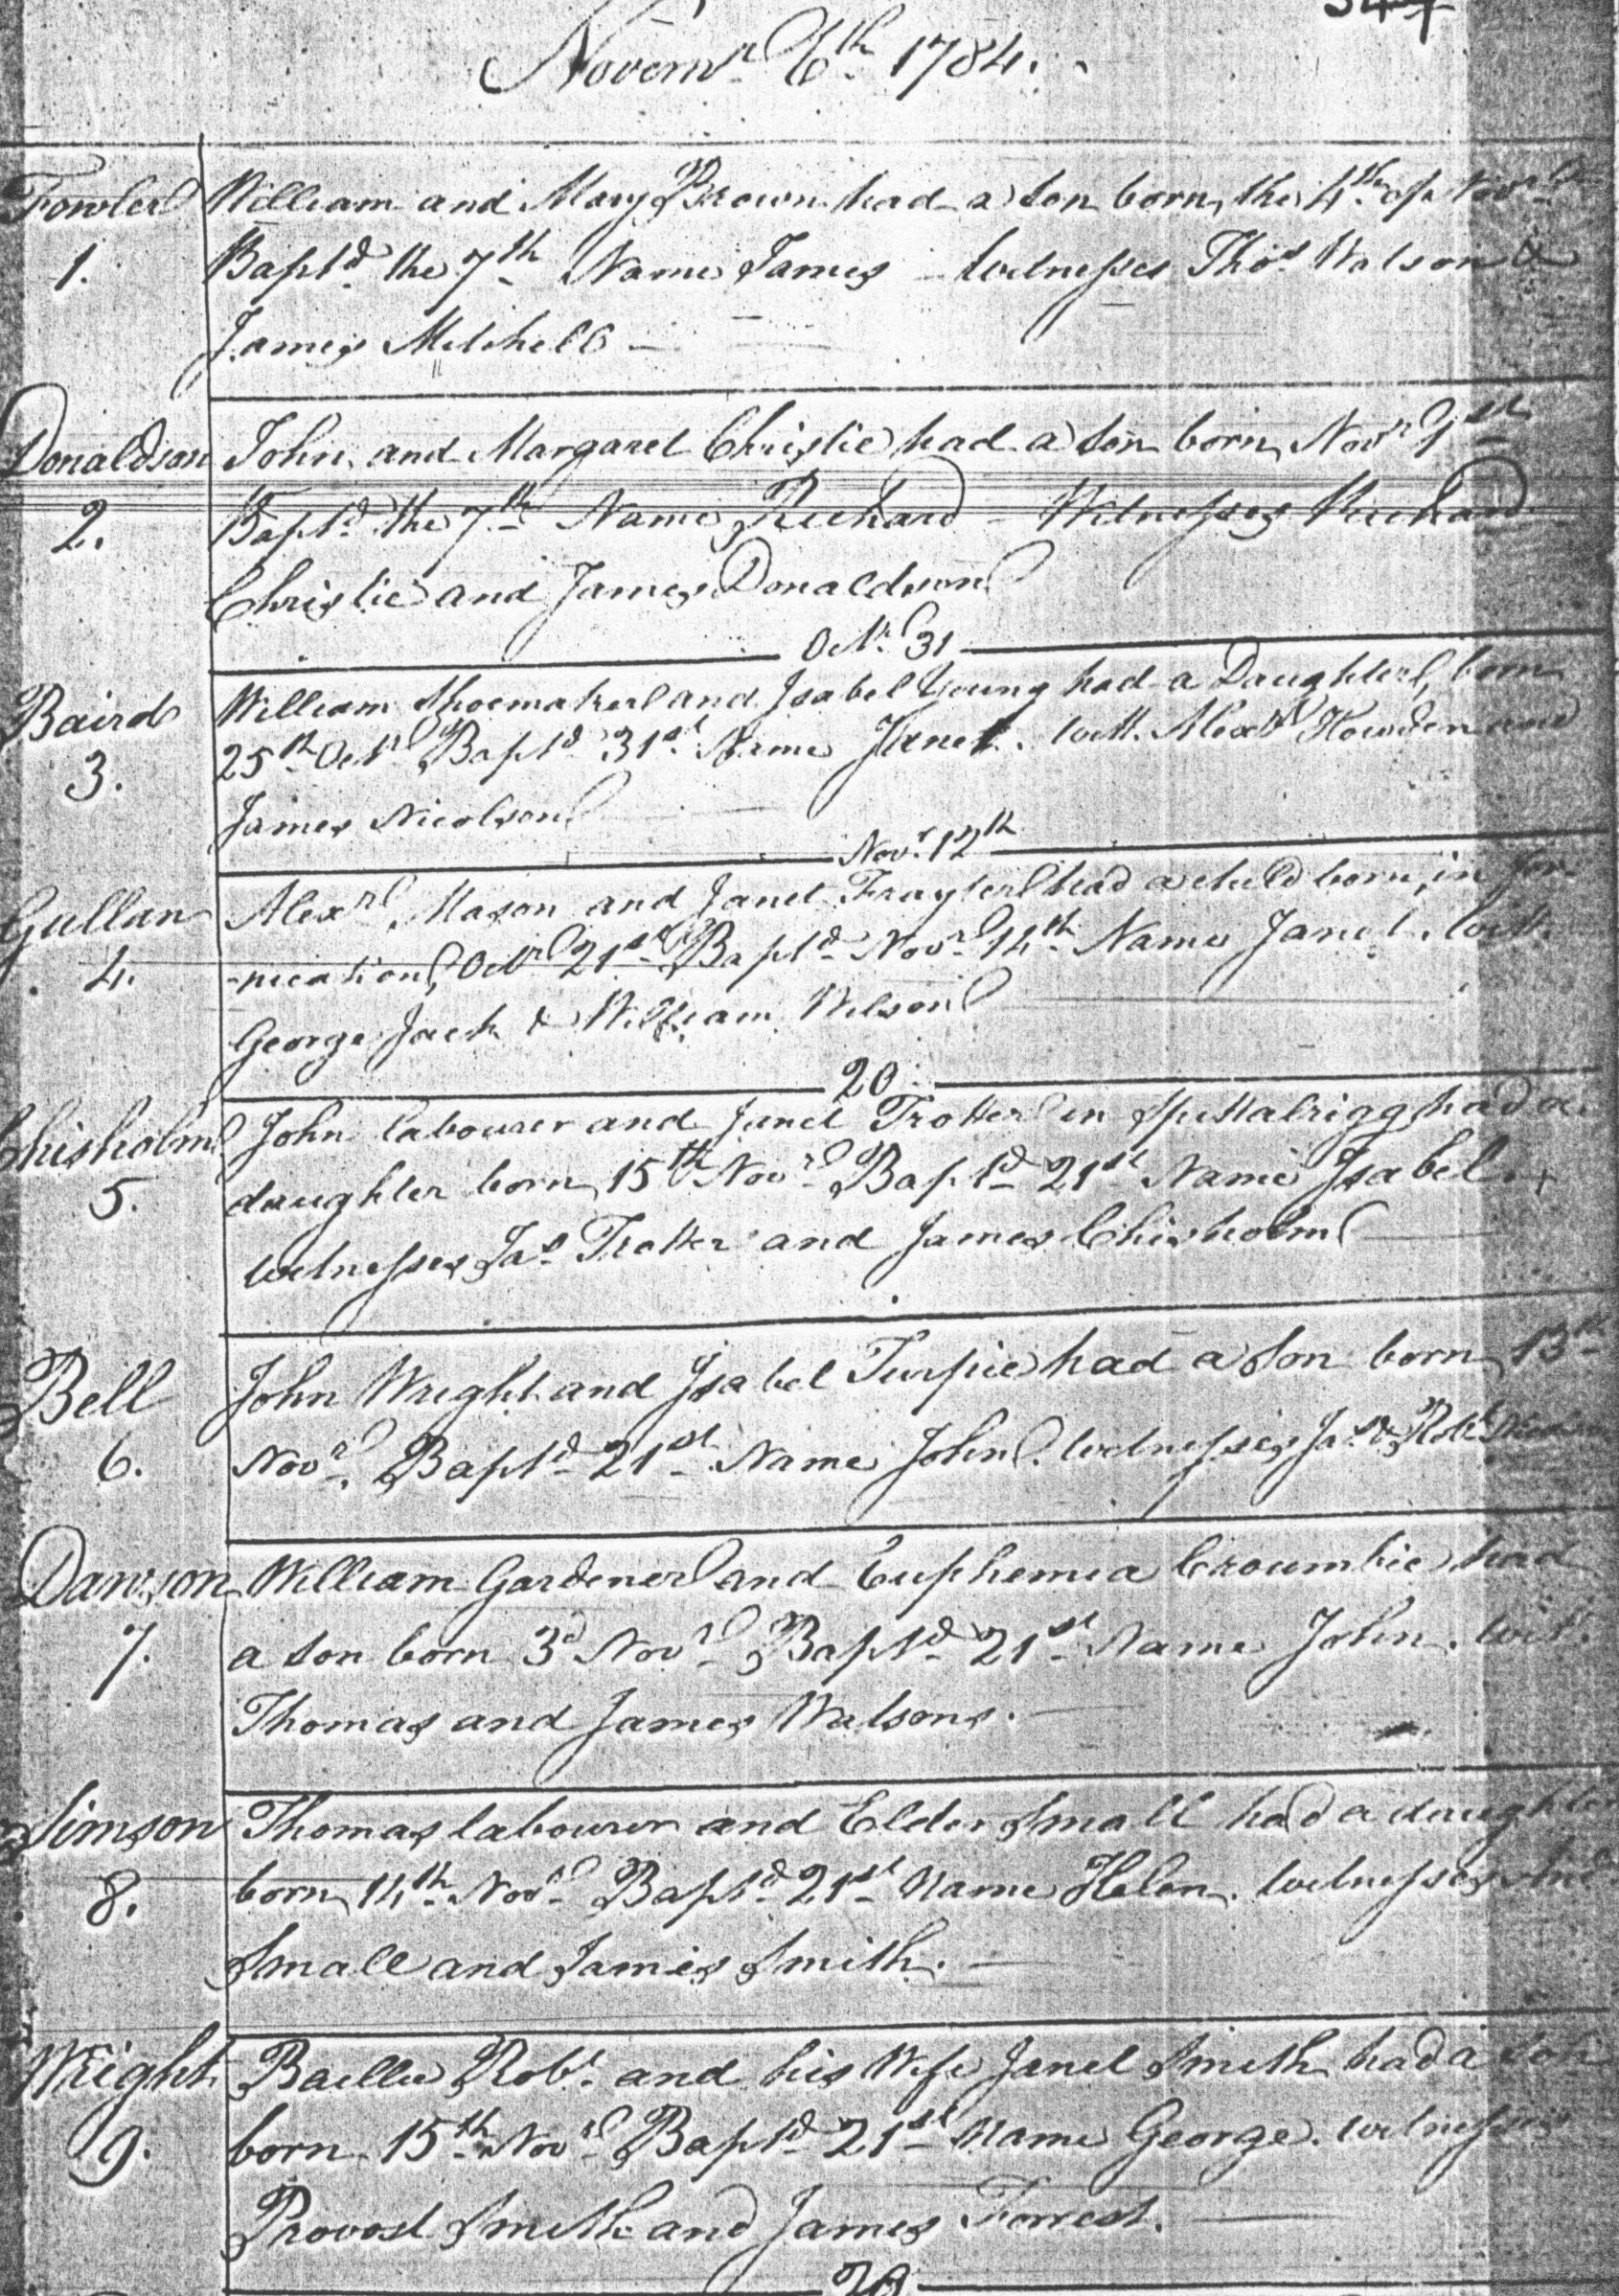 Novemr. 6th. 1784.
Fowler William and Mary Brown had a son born the 4th. of Novr.
1. Baptd. the 7th. Name James – witnesses Thos. Watson &
James Mitchell –
Donaldson John and Margaret Christie had a son born Novr. 1st
2. Baptd. the 7th. Name Richard – Witnesses Richard
Christie and James Donaldson
Octr. 31
Baird William Shoemaker and Isabel Young had a Daughter, born
3. 25th. Octr. Baptd. 31st. Name Janet. witt. Alexr. Howden and
James Nicolson
Novr. 12th
Gullan Alexr. Mason and Janet Frayter had a child born, in for-
4. -nication, Octr. 21st. Baptd. Novr. 14th. Name Janet. witt.
George Jack & William Wilson
20
Chisholm John labourer and Janet Trotter in Spittalrigg had a
5. daughter born 15th Novr. Baptd. 21st Name Isabel.
witnesses Jas. Trotter and James Chisholm
Bell John Wright and Isabel Turpie had a Son born 13th
6. Novr. Baptd. 21st. Name John. witnesses Jas. & Robt.
Dawson William Gardener and Euphemia Croumbie had
7. a son born 3d Novr. Baptd. 21st. Name John. wit.
Thomas and James Watsons.
Simson Thomas labourer and Elder Small had a daughter
8. born 14th. Novr. Baptd. 21st. Name Helen. witnesses
Small and James Smith.
Wright Baillie Robt. and his Wife Janet Smith had a son
9. born 15th. Novr. Baptd. 21st. Name George. witnesses
Provost Smith and James Forrest.
20